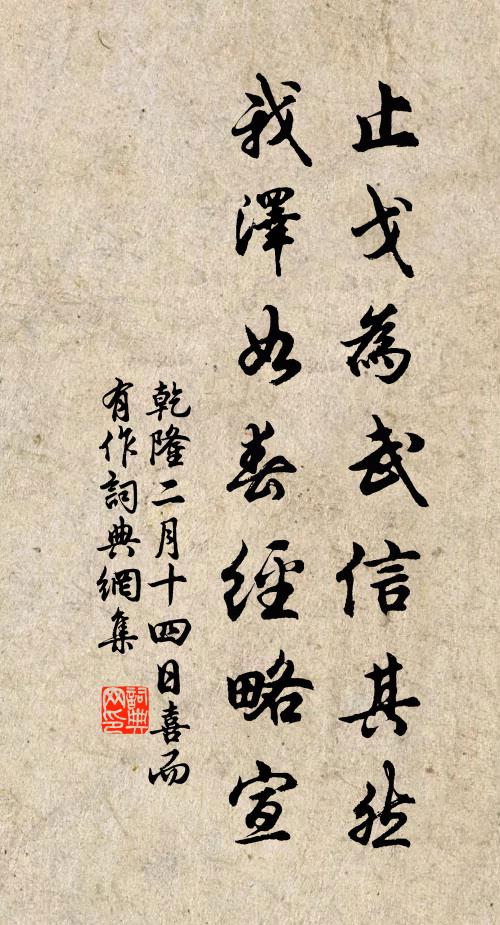 止戈為武信其然
我澤如春經略宣
乾隆二月十四日喜而
有作詞典網集
詞典网印